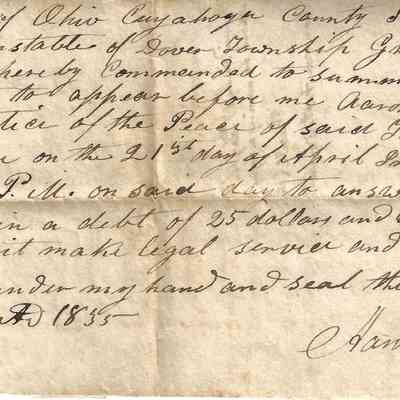 of Ohio Cuyahoga County
nstable of Dover Township
hereby Commanded to summ
to appear before me Aaro
tice of the Peace of said
on the 21st day of April
P.M. on said day to answ
in a debt of 25 dollars and
it make legal service and
under my hand and seal the
AD 1835
Han